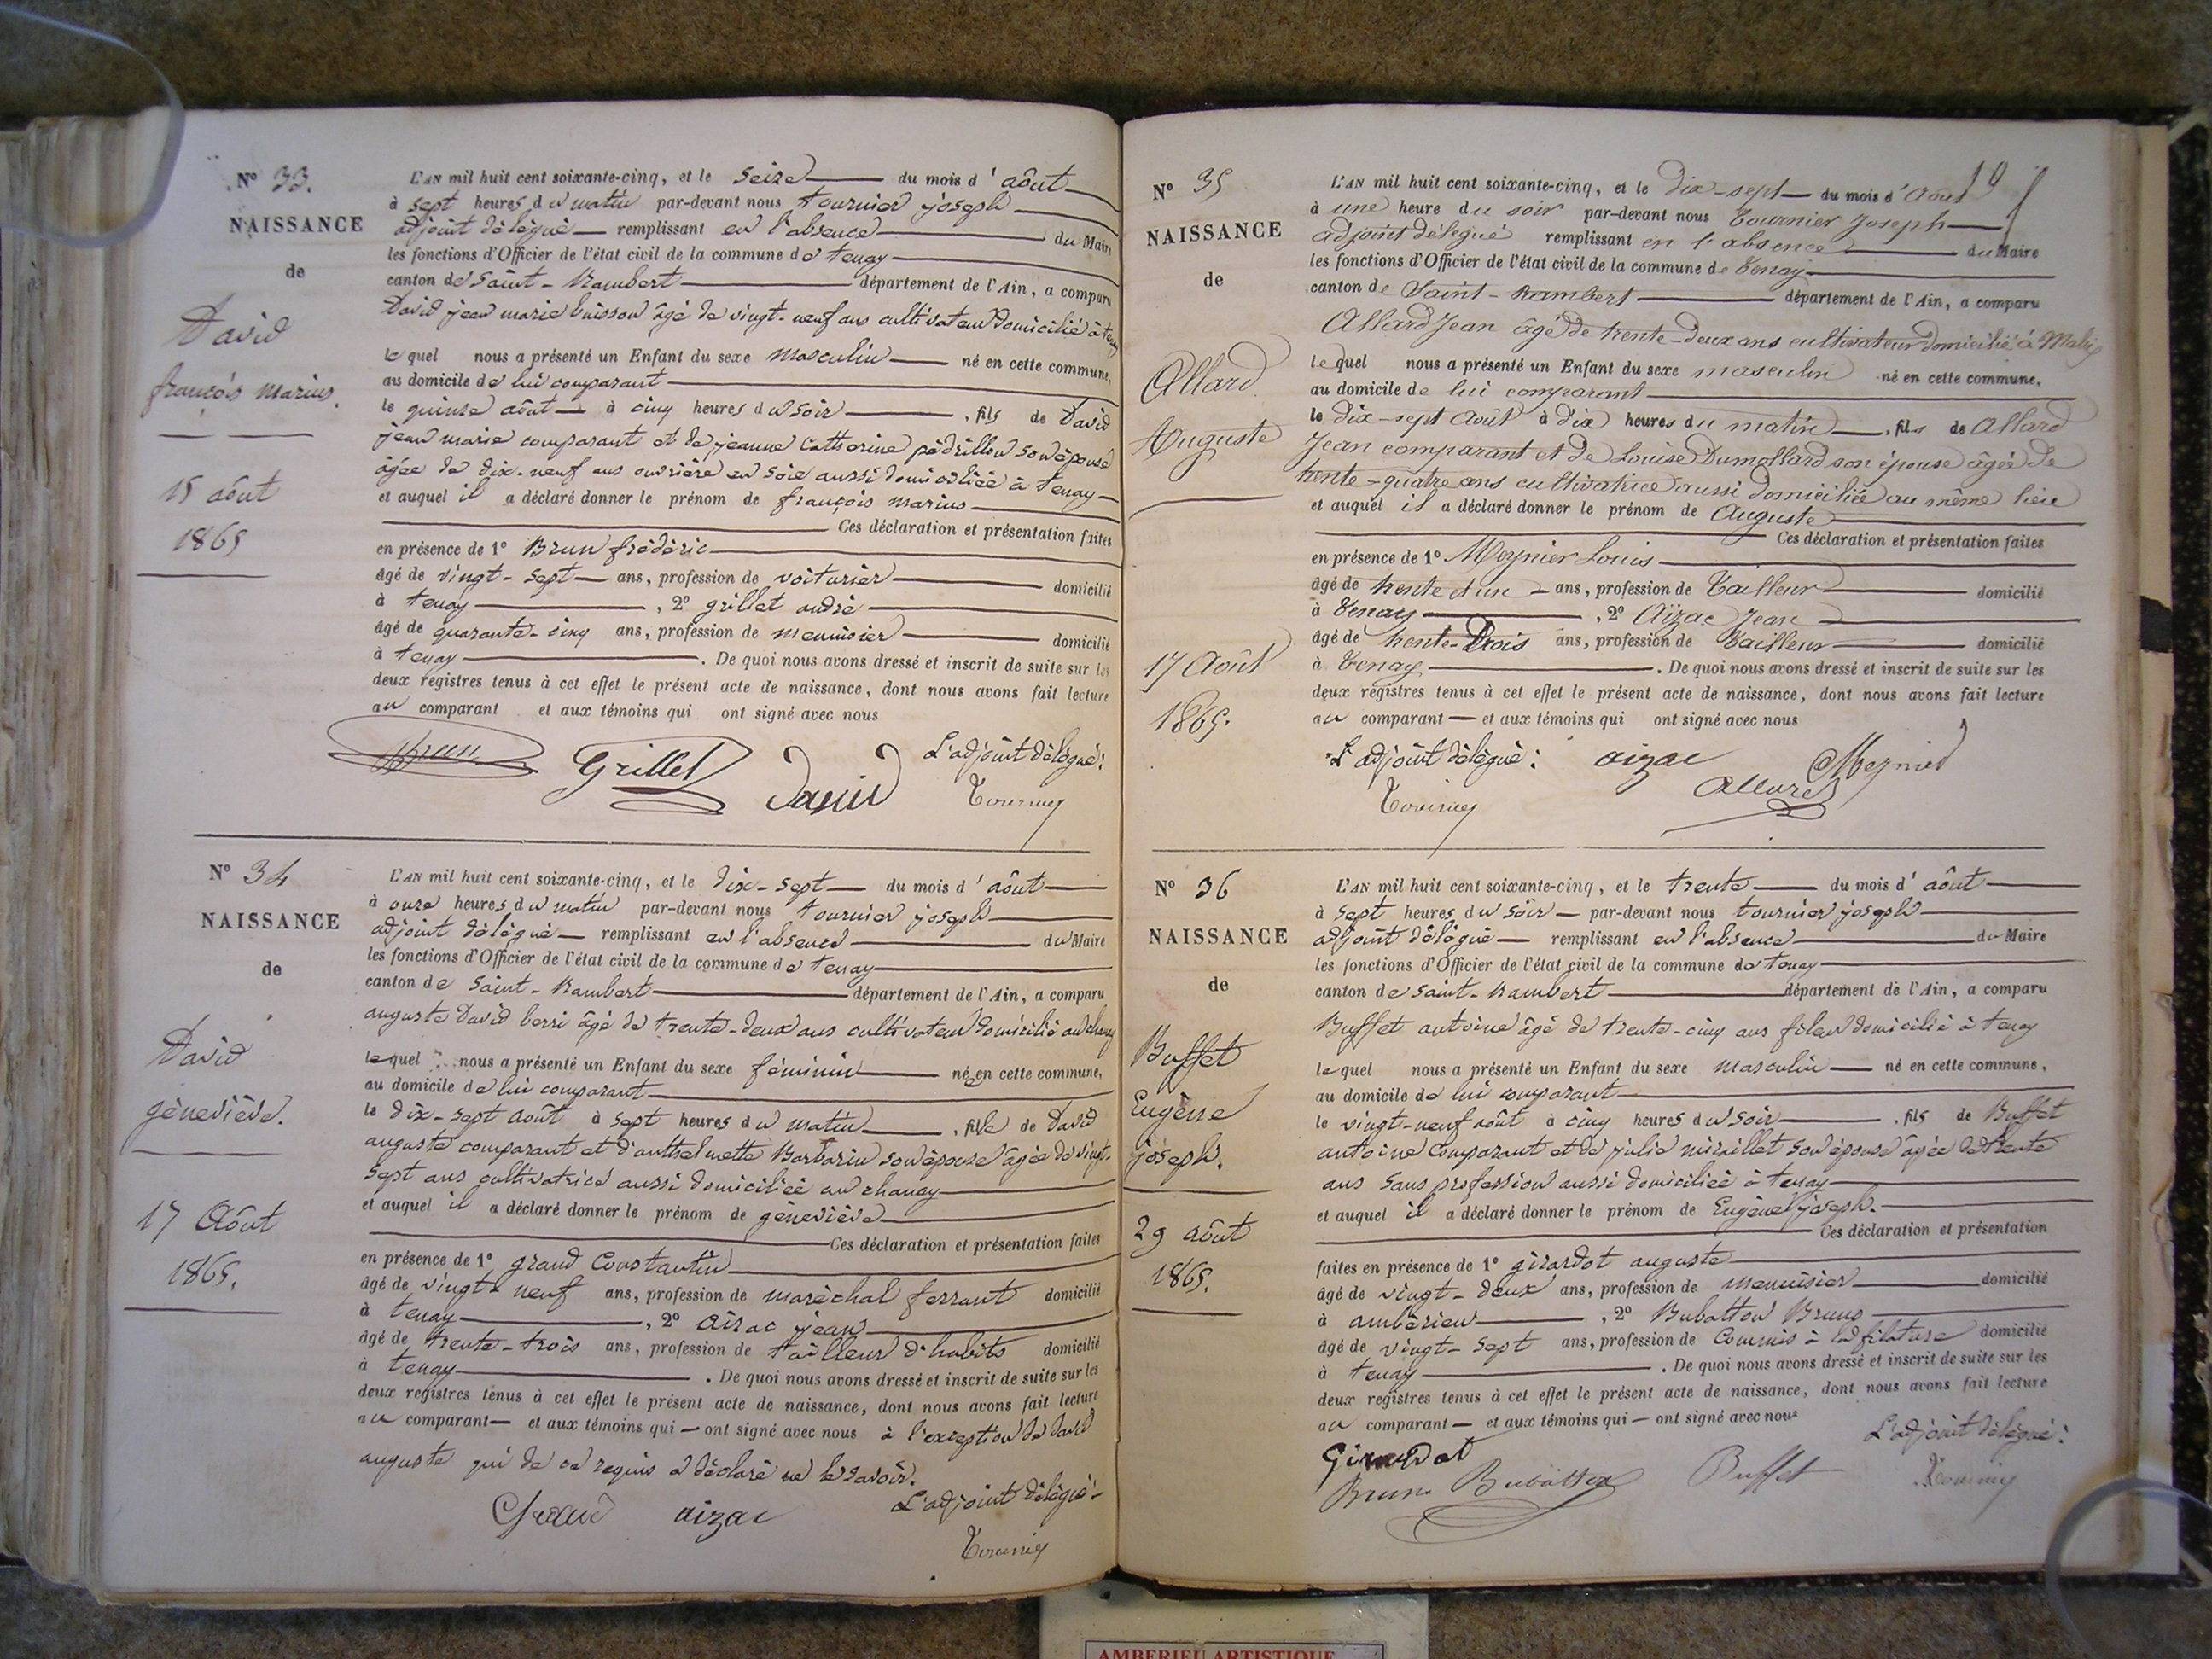 N° 33.
NAISSANCE
de
David
françois marius.
15 août
1865
L'AN mil huit cent soixante-cinq, et le seize du mois d'août
à sept heures du matin par-devant nous tournier joseph
adjoint délégué remplissant en l'absence du Maire
les fonctions d'Officier de l'état civil de la commune de tenay
canton de Saint-Rambert département de l'Ain, a comparu
David jean marie buisson âgé de vingt-neuf ans cultivateur domicilié à tenay
lequel nous a présenté un Enfant du sexe masculin né en cette commune,
au domicile de lui comparant
le quinze août à cinq heures du soir, fils de David
jean marie comparant et de jeanne Catherine pédrillon son épouse
âgée de dix-neuf ans ouvrière en soie aussi domiciliée à tenay
et auquel il a déclaré donner le prénom de françois marius
Ces déclaration et présentation faites
en présence de 1° Brun frédéric
âgé de vingt-sept ans, profession de voiturier domicilié
à tenay, 2° grillet andré
âgé de quarante-cinq ans, profession de menuisier domicilié
à tenay. De quoi nous avons dressé et inscrit de suite sur les
deux registres tenus à cet effet le présent acte de naissance, dont nous avons fait lecture
au comparant et aux témoins qui ont signé avec nous
L'adjoint délégué:
Brun Grillet David Tournier
N° 34
NAISSANCE
de
David
géneviève.
17 Août
1865.
L'AN mil huit cent soixante-cinq, et le dix-sept du mois d'août
à onze heures du matin par-devant nous tournier joseph
adjoint délégué remplissant en l'absence du Maire
les fonctions d'Officier de l'état civil de la commune de tenay
canton de Saint-Rambert département de l'Ain, a comparu
auguste David berri âgé de trente-deux ans cultivateur domicilié au chanay
lequel nous a présenté un Enfant du sexe féminin née en cette commune,
au domicile de lui comparant
le dix-sept août à sept heures du matin, fille de David
auguste comparant et d'anthelmette Barbarin son épouse âgée de vingt-
sept ans cultivatrice aussi domiciliée au chanay
et auquel il a déclaré donner le prénom de géneviève
Ces déclaration et présentation faites
en présence de 1° grand Constantin
âgé de vingt-neuf ans, profession de maréchal ferrant domicilié
à tenay, 2° aizac jean
âgé de trente-trois ans, profession de tailleur d'habits domicilié
à tenay. De quoi nous avons dressé et inscrit de suite sur les
deux registres tenus à cet effet le présent acte de naissance, dont nous avons fait lecture
au comparant et aux témoins qui ont signé avec nous à l'exception de David
auguste qui de ce requis a déclaré ne le savoir.
Grand aizac L'adjoint délégué
Tournier
19
N° 35
NAISSANCE
de
Allard
Auguste
17 Août
1865.
L'AN mil huit cent soixante-cinq, et le dix-sept du mois d'Août
à une heure du soir par-devant nous Tournier Joseph
adjoint délégué remplissant en l'absence du Maire
les fonctions d'Officier de l'état civil de la commune de Tenay
canton de Saint-Rambert département de l'Ain, a comparu
Allard Jean âgé de trente-deux ans cultivateur domicilié à
lequel nous a présenté un Enfant du sexe masculin né en cette commune,
au domicile de lui comparant
le dix-sept Août à dix heures du matin, fils de Allard
Jean comparant et de Louise Dumollard son épouse âgée de
trente-quatre ans cultivatrice aussi domiciliée au même lieu
et auquel il a déclaré donner le prénom de Auguste
Ces déclaration et présentation faites
en présence de 1° Meynier Louis
âgé de trente et un ans, profession de Tailleur domicilié
à Tenay, 2° Aïzac Jean
âgé de trente-trois ans, profession de Tailleur domicilié
à Tenay. De quoi nous avons dressé et inscrit de suite sur les
deux registres tenus à cet effet le présent acte de naissance, dont nous avons fait lecture
au comparant et aux témoins qui ont signé avec nous
L'adjoint délégué: aizac Meynier
Tournier Allard
N° 36
NAISSANCE
de
Buffet
Eugène
joseph.
29 août
1865.
L'AN mil huit cent soixante-cinq, et le trente du mois d'août
à sept heures du soir par-devant nous tournier joseph
adjoint délégué remplissant en l'absence du Maire
les fonctions d'Officier de l'état civil de la commune de tenay
canton de saint-Rambert département de l'Ain, a comparu
Buffet antoine âgé de trente-cinq ans fileur domicilié à tenay
lequel nous a présenté un Enfant du sexe masculin né en cette commune,
au domicile de lui comparant
le vingt-neuf août à cinq heures du soir, fils de Buffet
antoine comparant et de julie miraillet son épouse âgée de trente
ans sans profession aussi domiciliée à tenay
et auquel il a déclaré donner le prénom de Eugène joseph.
Ces déclaration et présentation
faites en présence de 1° girardot auguste
âgé de vingt-deux ans, profession de menuisier domicilié
à ambérieu, 2° Bubatton Bruno
âgé de vingt-sept ans, profession de Commis à la filature domicilié
à tenay. De quoi nous avons dressé et inscrit de suite sur les
deux registres tenus à cet effet le présent acte de naissance, dont nous avons fait lecture
au comparant et aux témoins qui ont signé avec nous
L'adjoint délégué:
Girardot
Bruno Bubatton Buffet Tournier
AMBERIEU ARTISTIQUE